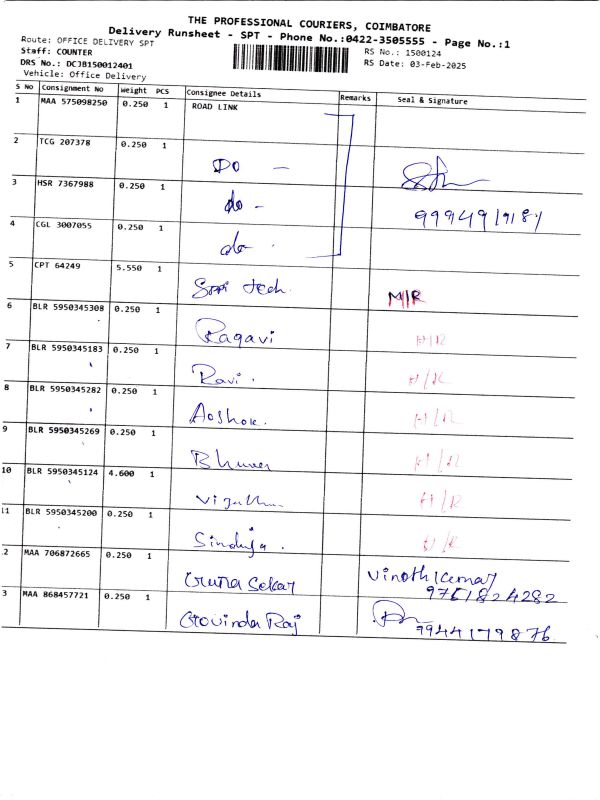 THE PROFESSIONAL COURIERS, COIMBATORE
Delivery Runsheet - SPT - Phone No.:0422-3505555 - Page No.:1
Route: OFFICE DELIVERY SPT
RS No.: 1500124
Staff: COUNTER
RS Date: 03-Feb-2025
DRS No.: DCJB150012401
Vehicle: Office Delivery
S No Consignment No Weight PCS Consignee Details Remarks Seal & Signature
1 MAA 575098250 0.250 1 ROAD LINK
2 TCG 207378 0.250 1
Do -
3 HSR 7367988 0.250 1
do -
9994919184
4 CGL 3007055 0.250 1
do -
5 CPT 64249 5.550 1
tech M/R
6 BLR 5950345308 0.250 1
Ragavi H/R
7 BLR 5950345183 0.250 1
Ravi. H/R
8 BLR 5950345282 0.250 1
Aoshok. H/R
9 BLR 5950345269 0.250 1
H/R
10 BLR 5950345124 4.600 1
H/R
11 BLR 5950345200 0.250 1
Sinduja. H/R
.2 MAA 706872665 0.250 1
Guna Sekar Vinoth Kumar
9751824282
3 MAA 868457721 0.250 1
Govinda Raj 9944179876